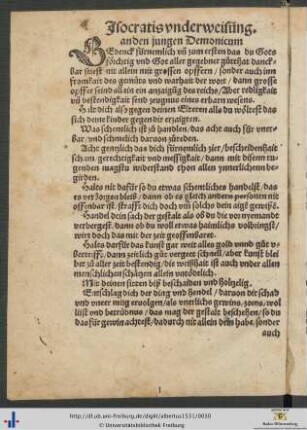 Isocratis vnderweisung,
an den jungen Demonicum
Bedenck fürnemlich vñ zum ersten das du Gots
förchtig vnd Got aller gegebner gůtthat danck-
bar seiest nit allein mit grossen opffern / sonder auch inn
fromkait des gemüts vnd warhait der wort / dann grosse
opffer seind allain ein anzaigũg des reichs / Aber redligkait
vñ bestendigkait send zeugnus eines erbarn wesens.
Halt dich also gegen deinen Eltern alls du wöltest das
sich deine kinder gegen dir erzaigten.
Was schemlich ist zů handlen, das acht auch für vner-
bar / vnd schmelich daruon zůreden.
Acht gentzlich das dich fürnemlich zier / bescheidenhait
scham gerechtigkait vnd messigkait / dann mit disenn tu-
genden magstu widerstand thon allen ynnerlichenn be-
girden.
Haltes nit dafür so du etwas schentliches handelst, das
es verborgen bleib / dann ob es gleich andern personen nit
offenbar ist, strafft dich doch vm̃ solchs dein aigē gewissē.
Handel dein sach der gestalt als ob du die vor nyemandt
verbergest, dann ob du woll etwas haimlichs volbringst /
wirt doch das mit der zeit geoffenbaret.
Haltes darfür das kunst gar weit alles gold vnnd gůt v-
bertrifft / dann zeitlich gůt vergeet schnell / aber kunst blei
bt zů aller zeit bestendig / die weißhait ist auch vnder allen
menschlichen schätzen allein vntödtlich.
Mit deinen sitten biß bescheiden vnd holtzelig.
Entschlag dich der ding vnd hendel / daruon dir schad
vnd vneer mag eruolgen / als vnerlichs gewins, zorns, wol
lust vnd betrübnus / das mag der gestalt beschehen / so du
das für gewin achtest / dadurch nit allein dein habe, sonder
auch
http://dl.ub.uni-freiburg.de/diglit/albertus1531/0030
© Universitätsbibliothek Freiburg